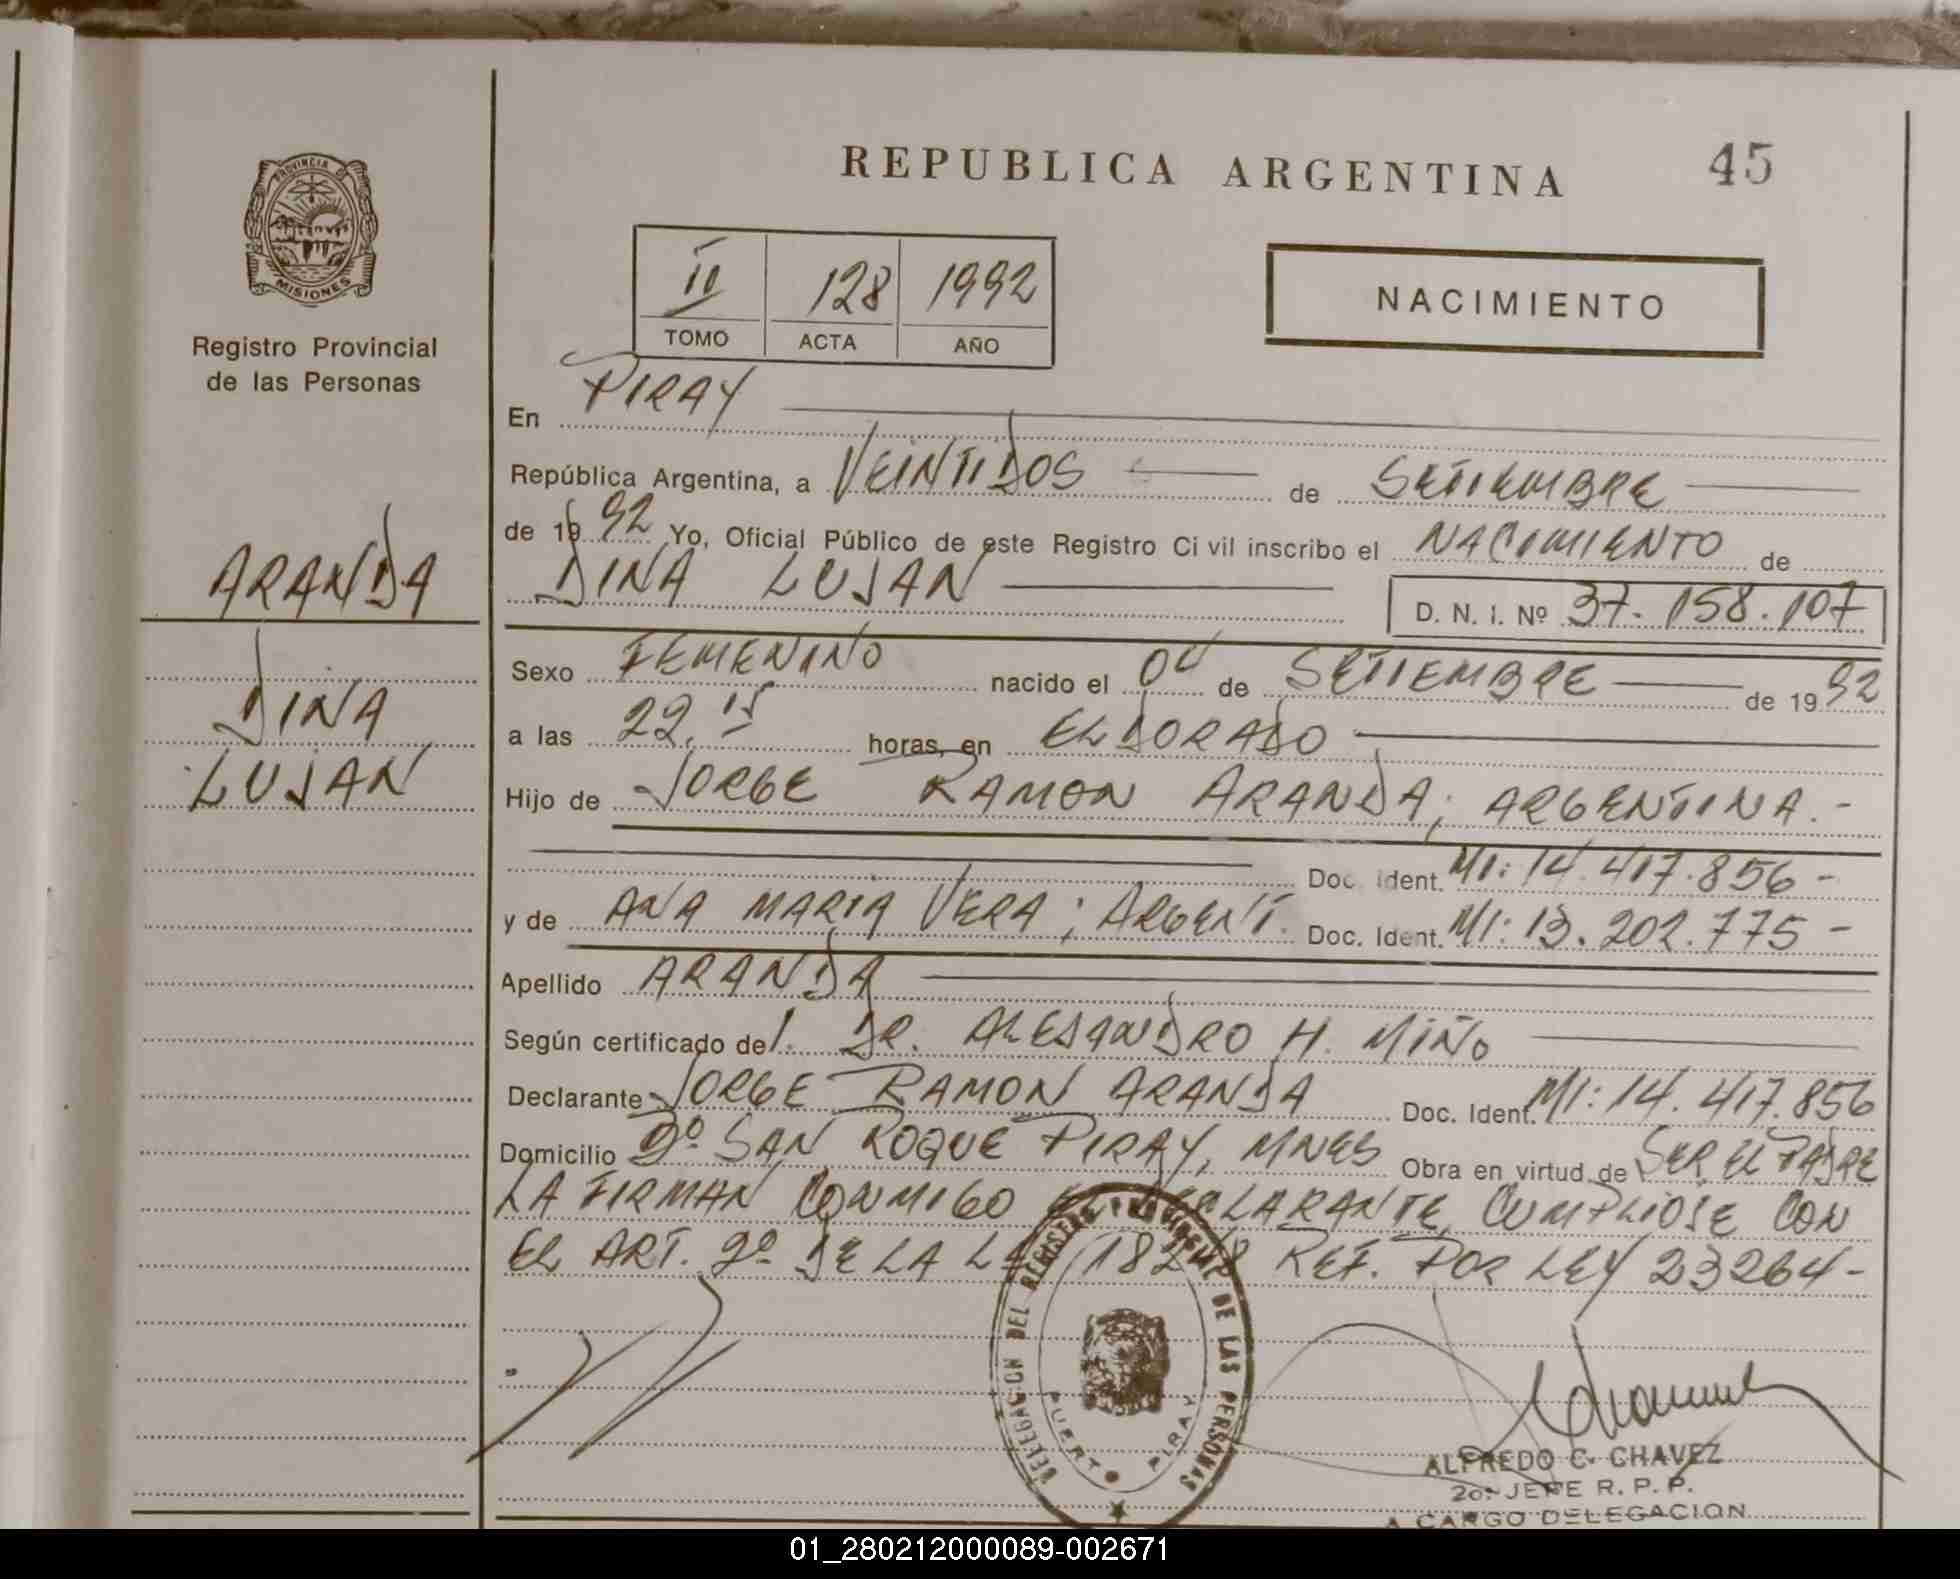 PROVINCIA DE
MISIONES
Registro Provincial
de las Personas
ARANDA
DINA
LUJAN
REPUBLICA ARGENTINA
45
II 128 1992
TOMO ACTA AÑO
NACIMIENTO
En PIRAY
República Argentina, a VEINTIDOS de SETIEMBRE
de 1992 Yo, Oficial Público de este Registro Ci vil inscribo el NACIMIENTO de
DINA LUJAN D. N. I. Nº 37.158.107
Sexo FEMENINO nacido el 04 de SETIEMBRE de 1992
a las 22,15 horas, en ELDORADO
Hijo de JORGE RAMON ARANDA; ARGENTINA.-
Doc. Ident. MI: 14.417.856-
y de ANA MARIA VERA; ARGENT. Doc. Ident. MI: 13.202.775-
Apellido ARANDA
Según certificado del. DR. ALEJANDRO H. MIÑO
Declarante JORGE RAMON ARANDA Doc. Ident. MI: 14.417.856
Domicilio Bº SAN ROQUE PIRAY, MNES Obra en virtud de SER EL PADRE
LA FIRMAN CONMIGO EL DECLARANTE, CUMPLIOSE CON
EL ART. 2º DE LA LEY 18248 REF. POR LEY 23264-
DELEGACION DEL REGISTRO PROVINCIAL DE LAS PERSONAS
PUERTO PIRAY
ALFREDO C. CHAVEZ
2o. JEFE R. P. P.
A CARGO DELEGACION
01_280212000089-002671